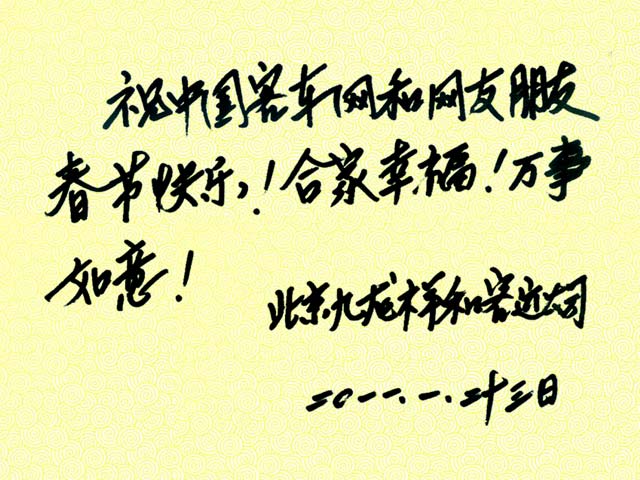 祝中国客车网和网友朋友
春节快乐！合家幸福！万事
如意！
北京九龙祥和客运公司
二〇一一.一.二十三日